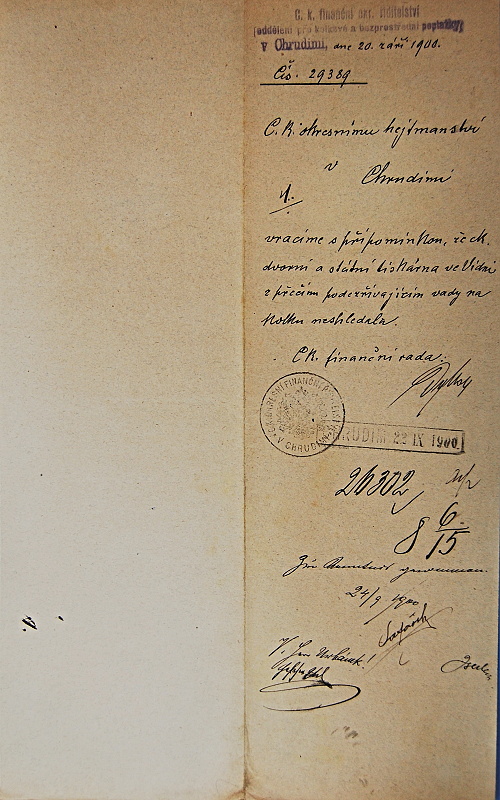 C. k. finanční okr. ředitelství
oddělení pro kolkové a bezprostřední poplatky
v Chrudimi, dne 20. září 1900.
Čís. 29389
C. k. okresnímu hejtmanství
v
Chrudimi
vracíme s připomínkou, že ck.
dvorní a státní tiskárna ve Vídni
z příčin podezřívajícím vady na
kolku neshledala.
Ck. finanční rada:
V CHRUDIMI
CHRUDIM 22 IX 1900
26302
8 6/15
Zur Kenntnis genommen
24/9 1900